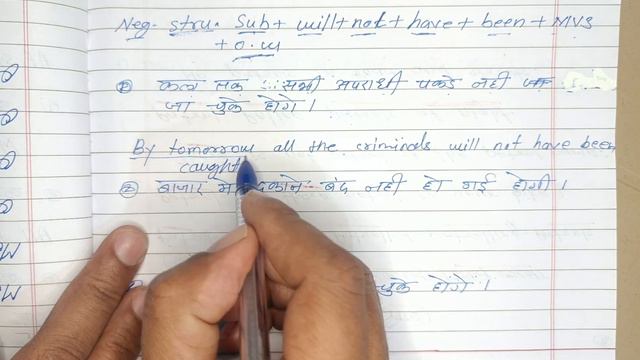 Neg. stru. Sub + will + not + have + been + MV3
+ O.W
① कल तक सभी अपराधी पकडे नही
जा चुके होगे ।
By tomorrow all the criminals will not have been
caught
② बाजार दुकाने बंद नही हो गई होगी ।
चुके होगे ।